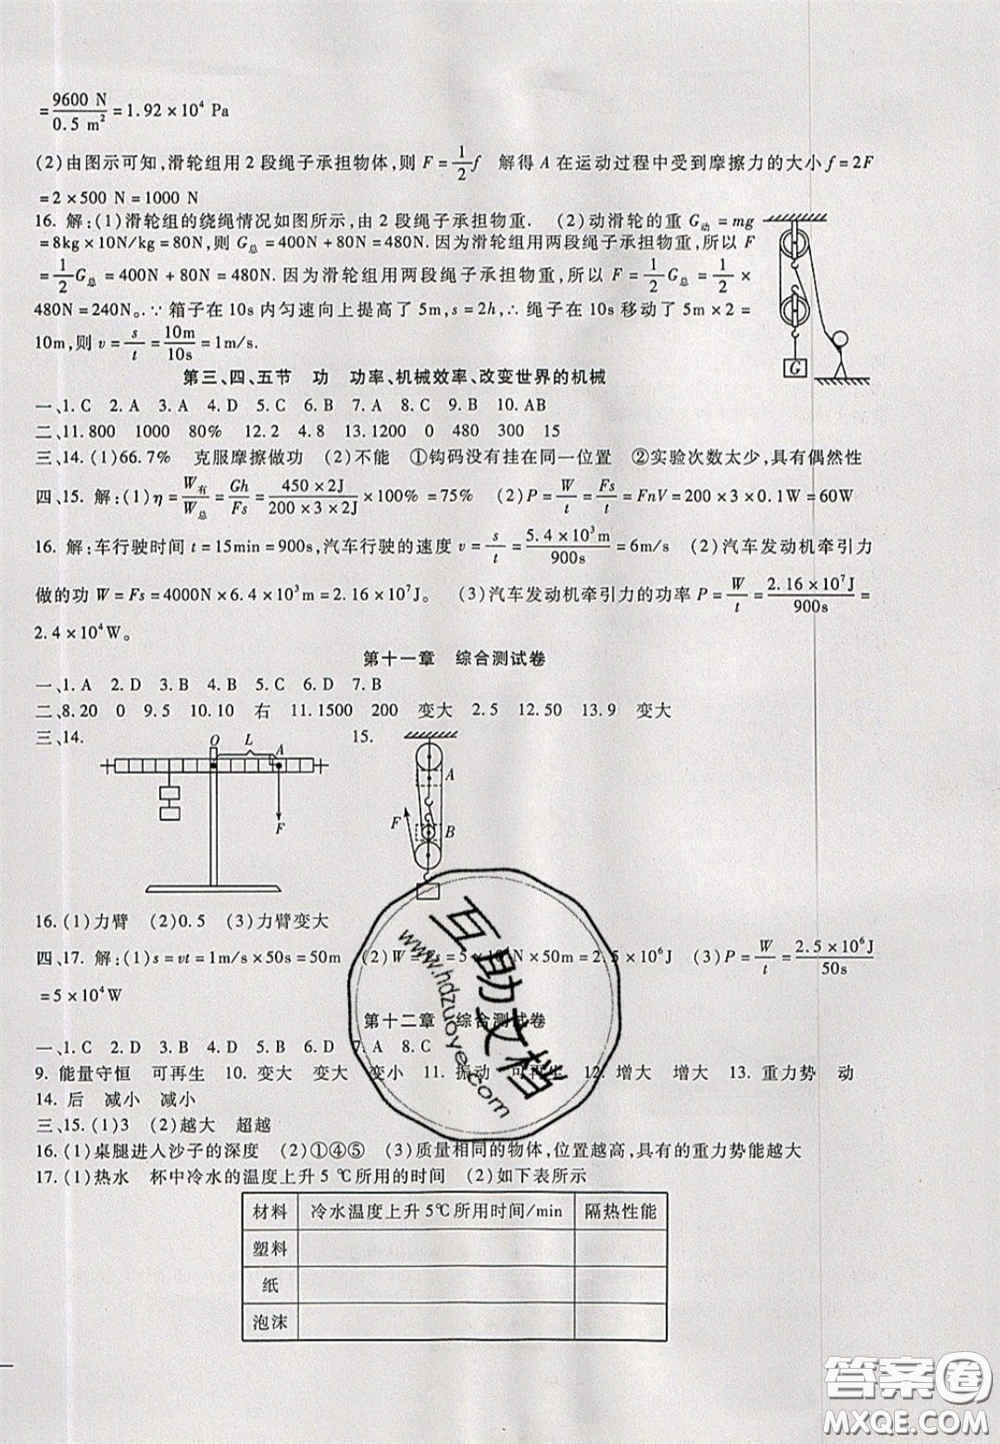 = 9600 N / 0.5 m² = 1.92×10⁴ Pa
(2)由图示可知,滑轮组用2段绳子承担物体,则 F=1/2 f 解得A在运动过程中受到摩擦力的大小 f=2F
=2×500 N=1000 N
16. 解:(1)滑轮组的绕绳情况如图所示,由2段绳子承担物重. (2)动滑轮的重 G动=mg
=8kg×10N/kg=80N,则 G总=400N+80N=480N.因为滑轮组用两段绳子承担物重,所以 F
=1/2 G总=400N+80N=480N.因为滑轮组用两段绳子承担物重,所以 F=1/2 G总=1/2×
480N=240N。∵箱子在10s内匀速向上提高了5m,s=2h,∴绳子在10s移动了5m×2=
10m,则 v=s/t=10m/10s=1m/s.
G
第三、四、五节 功 功率、机械效率、改变世界的机械
一、1.C 2.A 3.A 4.D 5.C 6.B 7.D 8.C 9.B 10.AB
二、11.800 1000 80% 12.2 4.8 13.1200 0 480 300 15
三、14.(1)66.7% 克服摩擦做功 (2)不能 ①钩码没有挂在同一位置 ②实验次数太少,具有偶然性
四、15. 解:(1)η=W有/W总=Gh/Fs=450×2J/200×3×2J×100%=75% (2)P=W/t=Fs/t=FnV=200×3×0.1W=60W
16. 解:车行驶时间 t=15min=900s,汽车行驶的速度 v=s/t=5.4×10³m/900s=6m/s (2)汽车发动机牵引力
做的功 W=Fs=4000N×6.4×10³m=2.16×10⁷J。 (3)汽车发动机牵引力的功率 P=W/t=2.16×10⁷J/900s=
2.4×10⁴W。
第十一章 综合测试卷
一、1.A 2.D 3.D 4.C 5.D 6.C 7.B
二、8.20 0 9.5 10.10 右 11.1500 200 变大 2.5 12.50 13.9 变大
三、14. 15.
O L A F
A F B
16.(1)力臂 (2)0.5 (3)力臂变大
四、17. 解:(1)s=vt=1m/s×50s=50m (2)W= =5×10 N×50m=2.5×10⁶J (3)P=W/t=2.5×10⁶J/50s
=5×10⁴W
第十二章 综合测试卷
一、1.C 2.D 3.D 4.D 5.D 6.D 7.A 8.C
9. 能量守恒 可再生 10. 变大 变大 变小 11. 振动 可再生 12. 增大 增大 13. 重力势 动
14. 后 减小 减小
三、15.(1)3 (2)越大 超越
16.(1)桌腿进入沙子的深度 (2)①④⑤ (3)质量相同的物体,位置越高,具有的重力势能越大
17.(1)热水 杯中冷水的温度上升5 ℃所用的时间 (2)如下表所示
材料 冷水温度上升5℃所用时间/min 隔热性能
塑料
纸
泡沫
互助文档
www.hdzuoye.com
答案圈
MXQE.COM